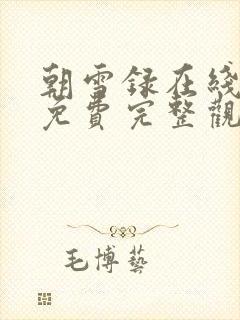 朝雪録在綫
免費完整觀
毛博藝